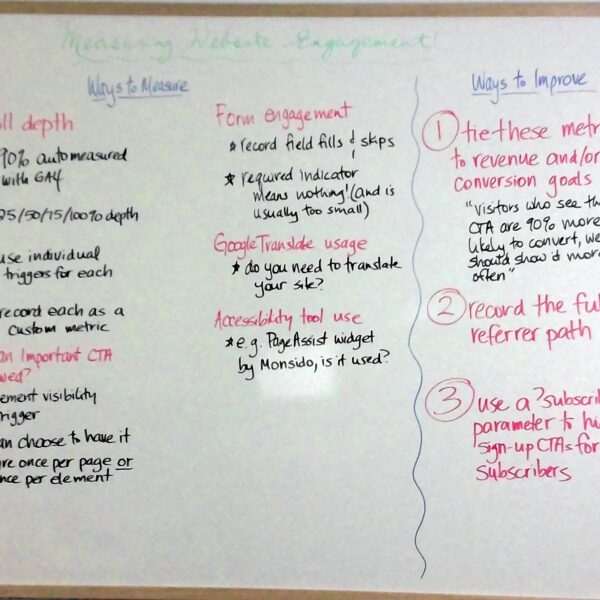 Measuring Website Engagement!
Ways to Measure
ll depth
90% automeasured
with GA4
25/50/75/100% depth
use individual
triggers for each
record each as a
custom metric
an important CTA
wed?
ement visibility
rigger
an choose to have it
re once per page or
nce per element
Form engagement
* record field fills & skips
* required indicator
means nothing! (and is
usually too small)
Google Translate usage
* do you need to translate
your site?
Accessibility tool use
* e.g. PageAssist widget
by Monsido, is it used?
Ways to Improve
1 tie these metri
to revenue and/or
conversion goals
"visitors who see th
CTA are 90% more
likely to convert, we
should show it more
often"
2 record the ful
referrer path
3 use a ?subscrib
parameter to hi
sign-up CTAs for
subscribers